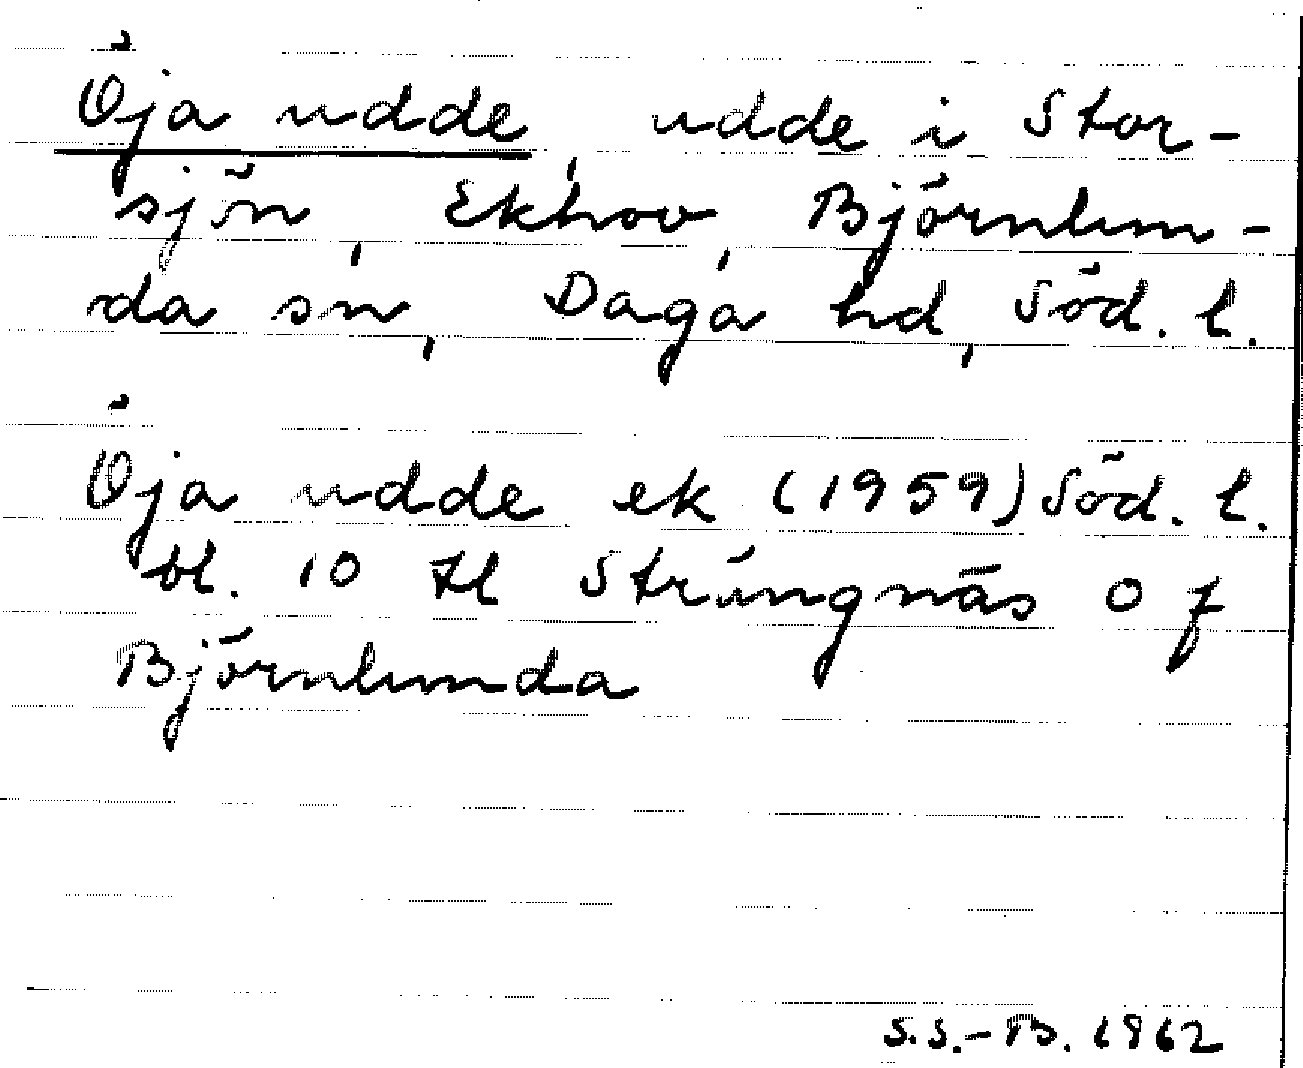 Öja udde, udde i Stor-
sjön, Ekhov, Björnlun-
da sn, Daga hd, Söd. l.
Öja udde ek (1959) Söd. l.
bl. 10 tl Strängnäs O f
Björnlunda
S.S.-B. 1962